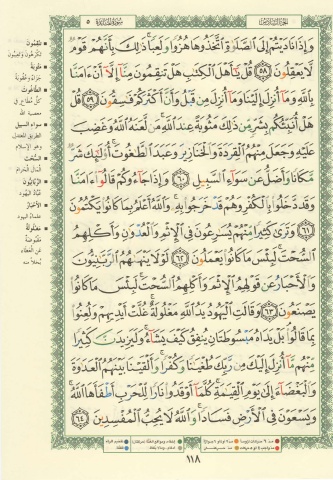 الجزء السادس
سورة المائدة ٥
وَإِذَا نَادَيْتُمْ إِلَى ٱلصَّلَوٰةِ ٱتَّخَذُوهَا هُزُوًا وَلَعِبًا ذَٰلِكَ بِأَنَّهُمْ قَوْمٌ
لَّا يَعْقِلُونَ ٥٨ قُلْ يَٰٓأَهْلَ ٱلْكِتَٰبِ هَلْ تَنقِمُونَ مِنَّآ إِلَّآ أَنْ ءَامَنَّا
بِٱللَّهِ وَمَآ أُنزِلَ إِلَيْنَا وَمَآ أُنزِلَ مِن قَبْلُ وَأَنَّ أَكْثَرَكُمْ فَٰسِقُونَ ٥٩ قُلْ
هَلْ أُنَبِّئُكُم بِشَرٍّ مِّن ذَٰلِكَ مَثُوبَةً عِندَ ٱللَّهِ مَن لَّعَنَهُ ٱللَّهُ وَغَضِبَ
عَلَيْهِ وَجَعَلَ مِنْهُمُ ٱلْقِرَدَةَ وَٱلْخَنَازِيرَ وَعَبَدَ ٱلطَّٰغُوتَ أُو۟لَٰٓئِكَ شَرٌّ
مَّكَانًا وَأَضَلُّ عَن سَوَآءِ ٱلسَّبِيلِ ٦٠ وَإِذَا جَآءُوكُمْ قَالُوٓا۟ ءَامَنَّا
وَقَد دَّخَلُوا۟ بِٱلْكُفْرِ وَهُمْ قَدْ خَرَجُوا۟ بِهِۦ وَٱللَّهُ أَعْلَمُ بِمَا كَانُوا۟ يَكْتُمُونَ
٦١ وَتَرَىٰ كَثِيرًا مِّنْهُمْ يُسَٰرِعُونَ فِى ٱلْإِثْمِ وَٱلْعُدْوَٰنِ وَأَكْلِهِمُ
ٱلسُّحْتَ لَبِئْسَ مَا كَانُوا۟ يَعْمَلُونَ ٦٢ لَوْلَا يَنْهَىٰهُمُ ٱلرَّبَّٰنِيُّونَ
وَٱلْأَحْبَارُ عَن قَوْلِهِمُ ٱلْإِثْمَ وَأَكْلِهِمُ ٱلسُّحْتَ لَبِئْسَ مَا كَانُوا۟
يَصْنَعُونَ ٦٣ وَقَالَتِ ٱلْيَهُودُ يَدُ ٱللَّهِ مَغْلُولَةٌ غُلَّتْ أَيْدِيهِمْ وَلُعِنُوا۟
بِمَا قَالُوا۟ بَلْ يَدَاهُ مَبْسُوطَتَانِ يُنفِقُ كَيْفَ يَشَآءُ وَلَيَزِيدَنَّ كَثِيرًا
مِّنْهُم مَّآ أُنزِلَ إِلَيْكَ مِن رَّبِّكَ طُغْيَٰنًا وَكُفْرًا وَأَلْقَيْنَا بَيْنَهُمُ ٱلْعَدَٰوَةَ
وَٱلْبَغْضَآءَ إِلَىٰ يَوْمِ ٱلْقِيَٰمَةِ كُلَّمَآ أَوْقَدُوا۟ نَارًا لِّلْحَرْبِ أَطْفَأَهَا ٱللَّهُ
وَيَسْعَوْنَ فِى ٱلْأَرْضِ فَسَادًا وَٱللَّهُ لَا يُحِبُّ ٱلْمُفْسِدِينَ ٦٤
تنقمون
مثوبة
الطاغوت
سواء السبيل
السحت
الربانيون
الأحبار
مغلولة
١١٨